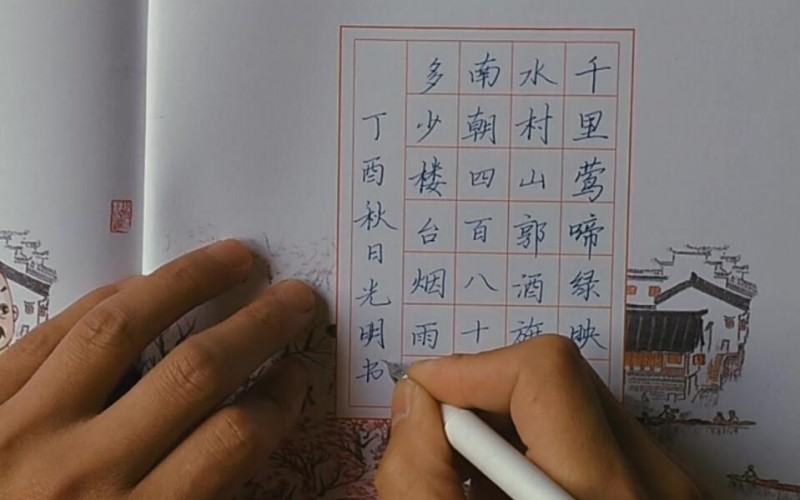 千里莺啼绿映
水村山郭酒旗
南朝四百八十
多少楼台烟雨
丁酉秋日光明书